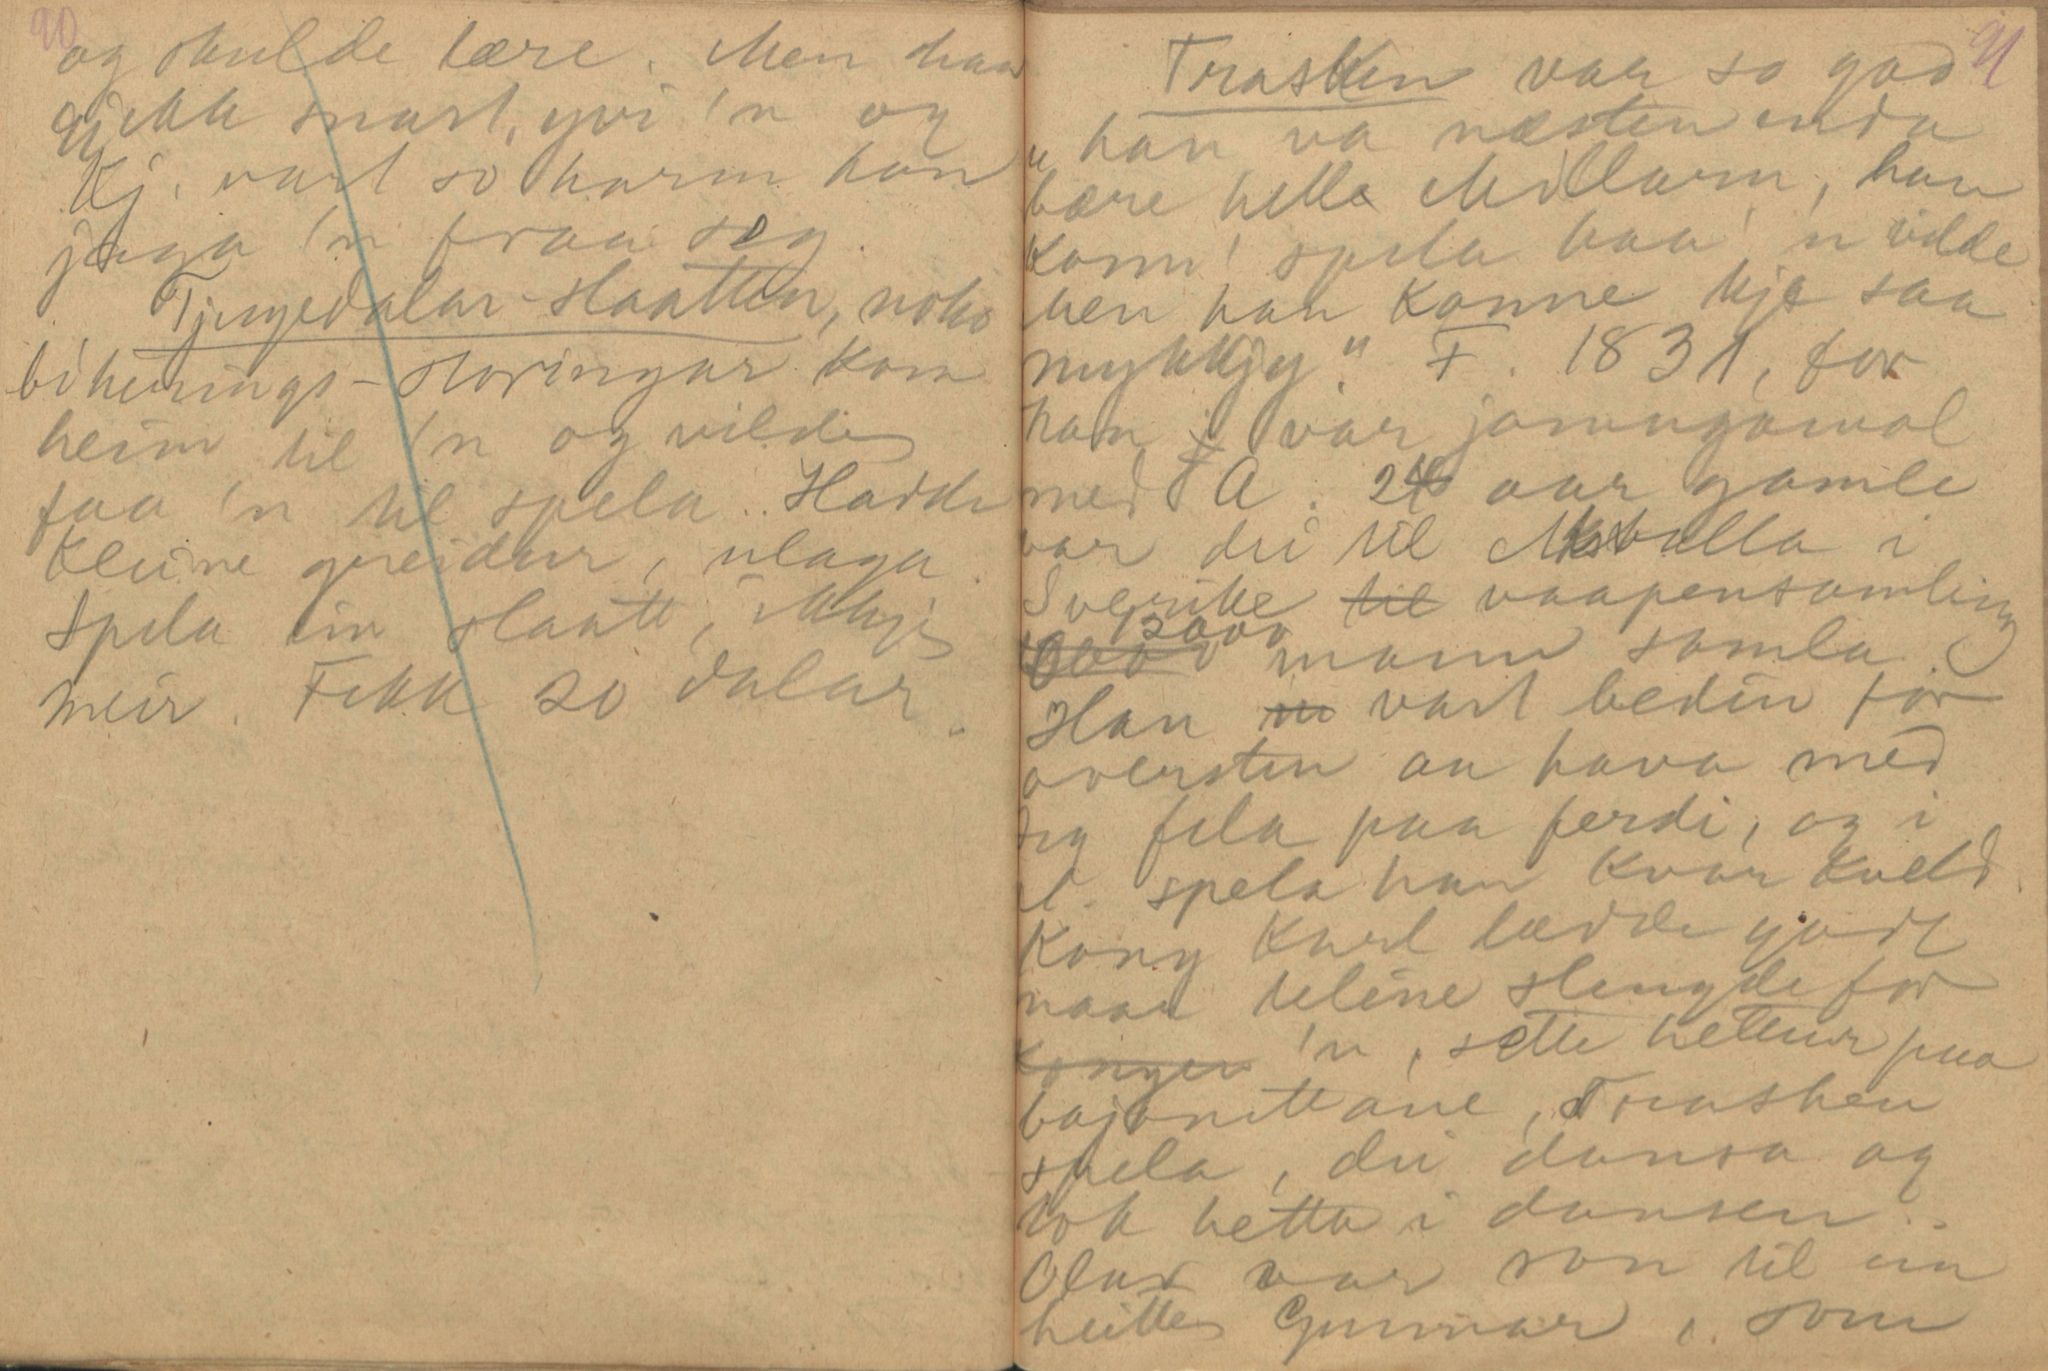 90
og skulde lære. Men han
gjekk snart yvi 'n og
Kj. vart so harm han
jaga 'n fraa seg.
Tjugedalar-slaatten, noko
heim til 'n og vilde
faa 'n til spela. Hadde
kleine greidur, ulaga.
Spela ein slaatt, ikkje
meir. Fekk 20 dalar.
91
Trasken var so god
"han va næsten enda
bære hell Millarn, han
konn' spela baa' 'n vilde
men han konne kje saa
mykkjy." F. 1831, for
han var jamngamal
med A. 24 aar gamle
var dei til i
Sverike til vaapensamling
12000 mann samla.
Han vart beden for
oversten aa hava med
seg fela paa ferdi, og i
l. spela han kvar kveld.
Kong Karl lædde godt
naar telene slengde for
kongen 'n, sette hettur paa
bajonettane, Trasken
spela, dei dansa og
tok hetta i dansen.
Olav var son til ein
heitte Gunnar, som